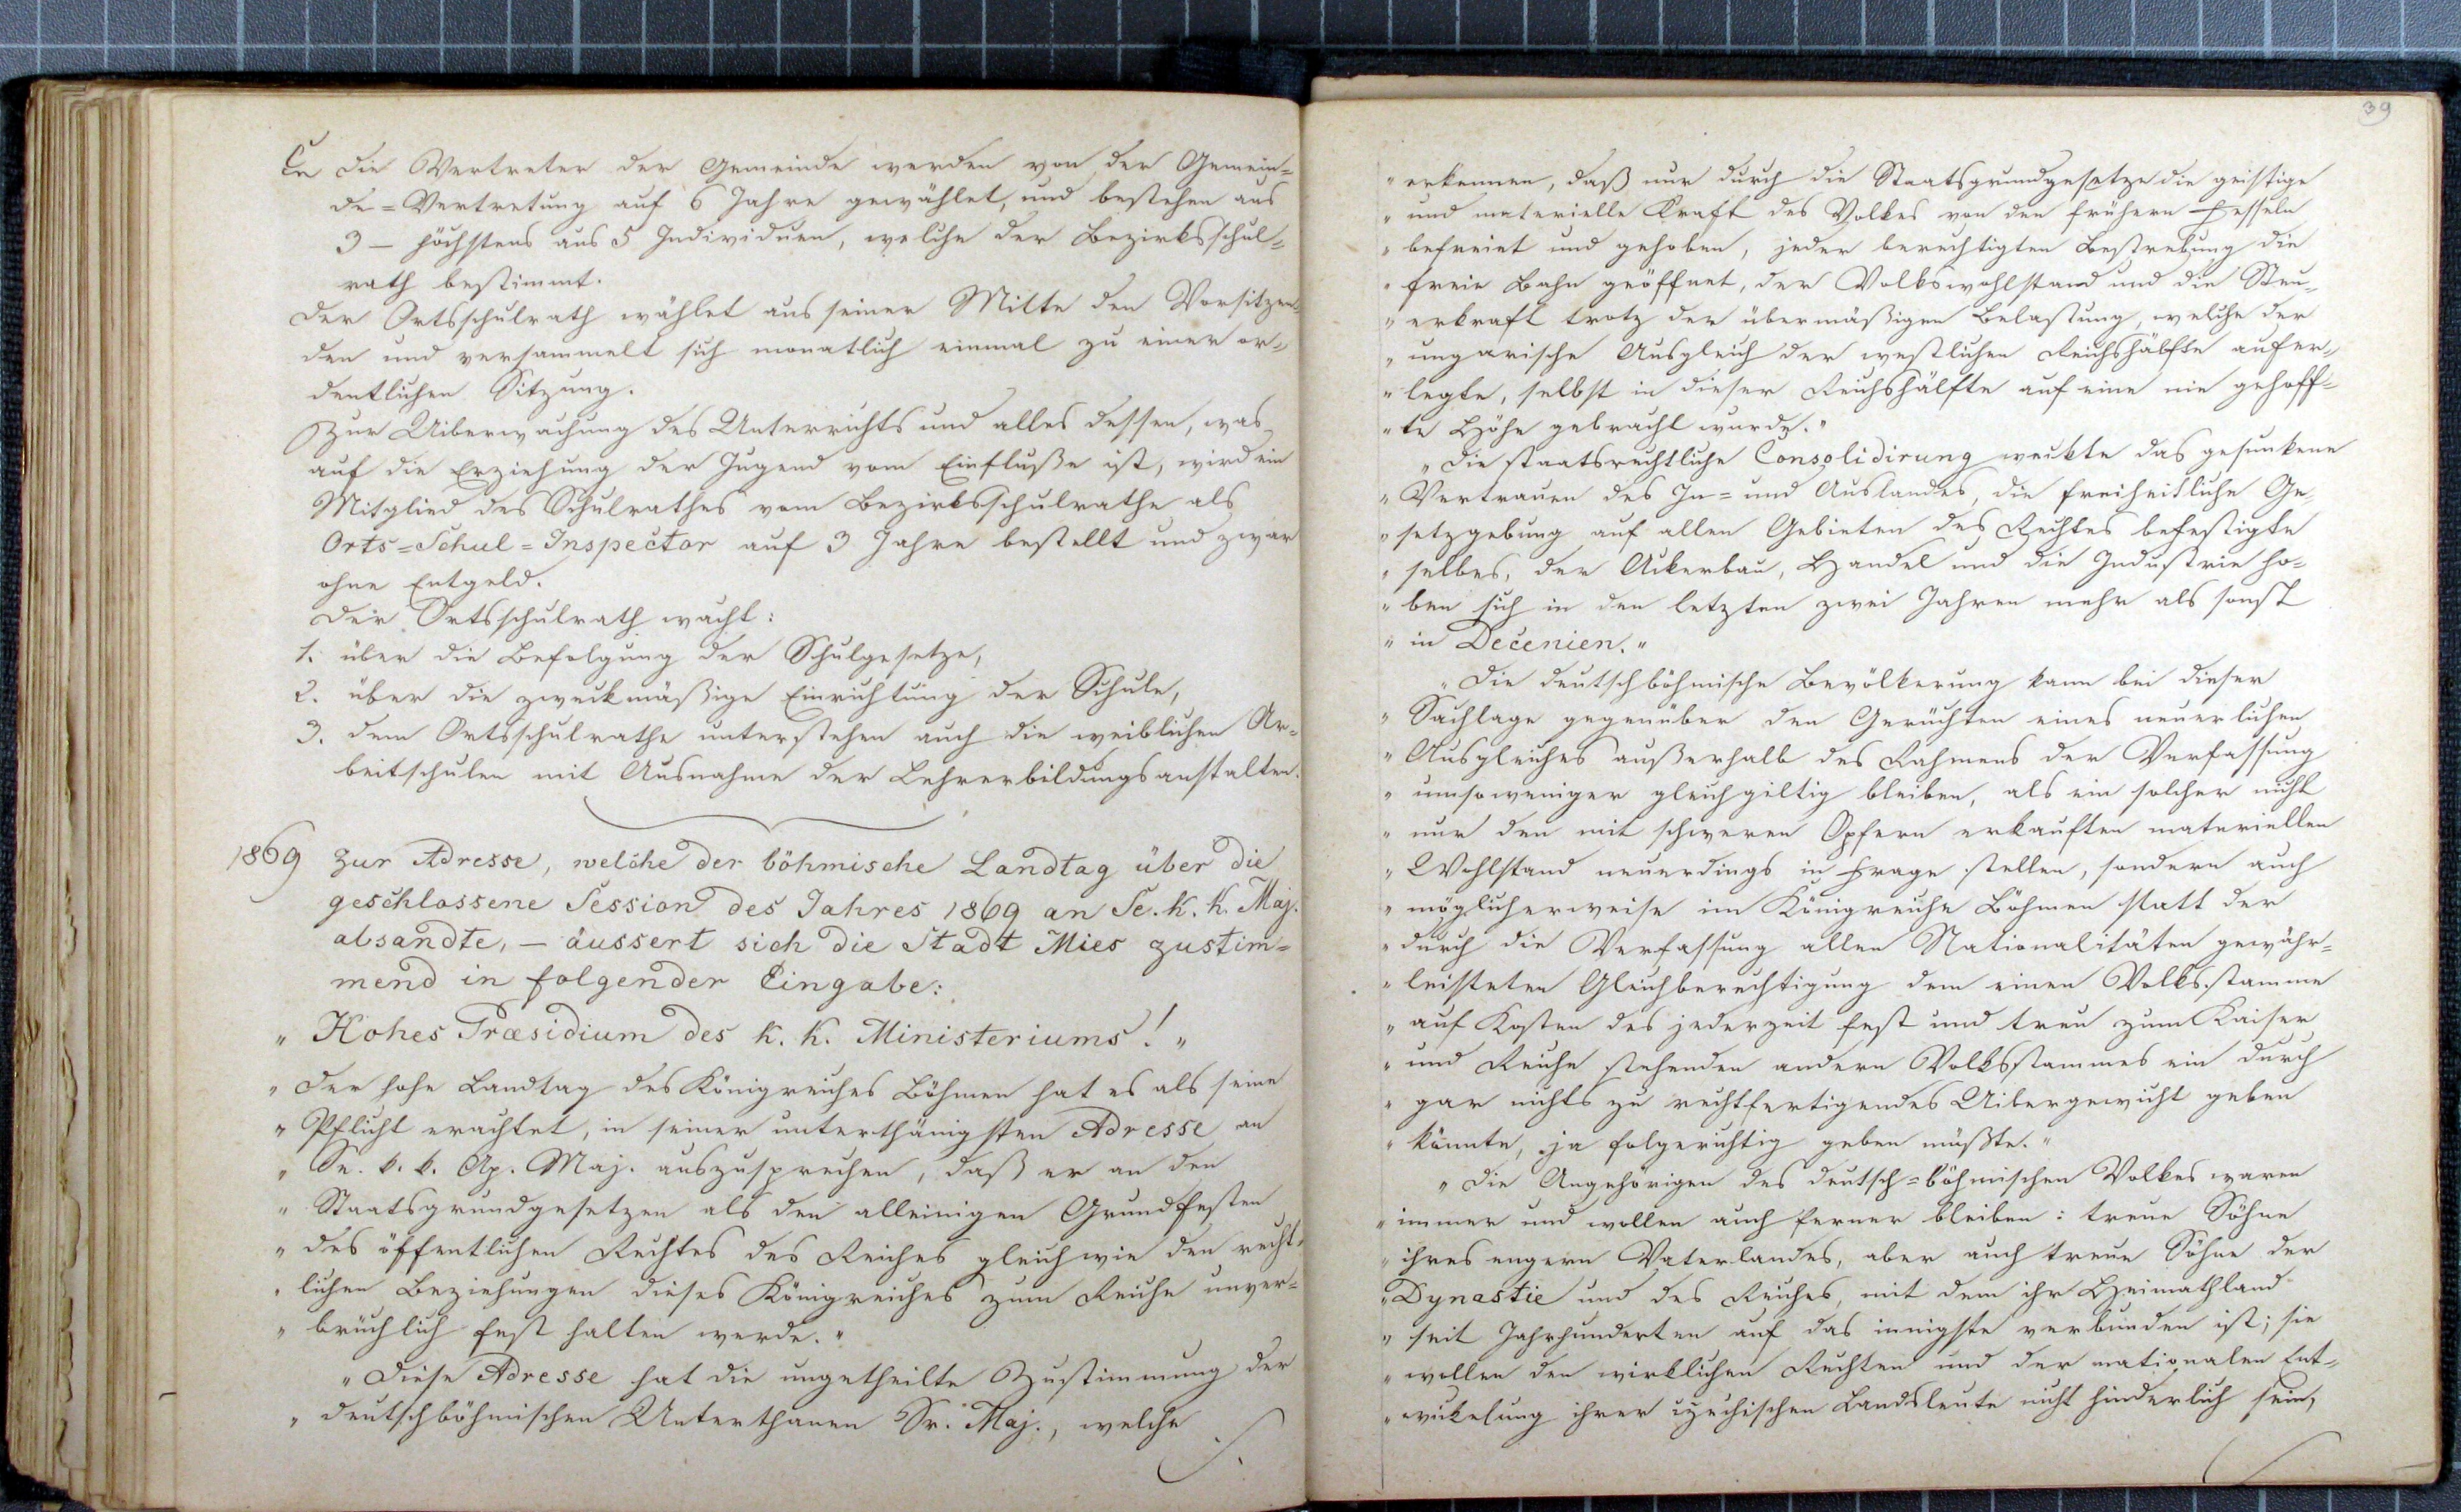 C, Die Vertreter der Gemeinde werden von der Gemein=
de=Vertretung auf 6 Jahre gewählet, und bestehen aus
3 – höchstens aus 5 Individuen, welche der Bezirksschul=
rath bestimmt.
Der Ortsschulrath wählet aus seiner Mitte den Vorsitzen=
den und versammelt sich monatlich einmal zu einer or=
dentlichen Sitzung.
Zur Uiberwachung des Unterrichts und alles dessen, was
auf die Erziehung der Jugend vom Einfluße ist, wird ein
Mitglied des Schulrathes vom Bezirksschulrathe als
Orts=Schul=Inspector auf 3 Jahre bestellt und zwar
ohne Entgeld.
Der Ortsschulrath wacht:
1. über die Befolgung der Schulgesetze,
2. über die zweckmäßige Einrichtung der Schule,
3. dem Ortsschulrathe unterstehen auch die weiblichen Ar=
beitschulen mit Ausnahme der Lehrerbildungsanstalten.
1869 Zur Adresse, welche der böhmische Landtag über die
geschlossene Session des Jahres 1869 an Se. k. k. Maj.
absandte, – äussert sich die Stadt Mies zustim=
mend in folgender Eingabe:
" Hohes Præsidium des k. k. Ministeriums! "
" Der hohe Landtag des Königreiches Böhmen hat es als seine
" Pflicht erachtet, in seiner unterthänigsten Adresse an
" Se. k. k. Ap. Maj. auszusprechen, daß er an den
" Staatsgrundgesetzen als den alleinigen Grundfesten
" des öffentlichen Rechtes des Reiches gleich wie den recht=
" lichen Beziehungen dieses Königreiches zum Reiche unver=
" brüchlich fest halten werde. "
" Diese Adresse hat die ungetheilte Zustimmung der
" deutschböhmischen Unterthanen Sr. Maj., welche ./.
39
" erkennen, daß nur durch die Staatsgrundgesetze die geistige
" und materielle Kraft des Volkes von den frühern Fesseln
" befreiet und gehoben, jeder berechtigten Bestrebung die
" freie Bahn geöffnet, der Volkswohlstand und die Steu=
" erkraft trotz der übermäßigen Belastung, welche der
" ungarische Ausgleich der westlichen Reichshälfte aufer=
" legte, selbst in dieser Reichshälfte auf eine nie gehoff=
" te Höhe gebracht wurde. "
" Die staatsrechtliche Consolidirung weckte das gesunkene
" Vertrauen des In= und Auslandes, die freiheitliche Ge=
" setzgebung auf allen Gebieten des Rechtes befestigte
" selbes, der Ackerbau, Handel und die Industrie ho=
" ben sich in den letzten zwei Jahren mehr als sonst
" in Decenien. "
" Die deutschböhmische Bevölkerung kann bei dieser
" Sachlage gegenüber den Gerüchten eines neuerlichen
" Ausgleiches außerhalb des Rahmens der Verfassung
" umsoweniger gleichgiltig bleiben, als ein solcher nicht
" nur den mit schweren Opfern erkauften materiellen
" Wohlstand neuerdings in Frage stellen, sondern auch
" möglicherweise im Königreiche Böhmen statt der
" durch die Verfassung allen Nationalitäten gewähr=
" leisteten Gleichberechtigung dem einen Volksstamme
" auf Kosten des jederzeit fest und treu zum Kaiser
" und Reiche stehenden andern Volksstammes ein durch
" gar nichts zu rechtfertigendes Uibergewicht geben
" könnte, ja folgerichtig geben müßte. "
" Die Angehörigen des deutsch=böhmischen Volkes waren
" immer und wollen auch ferner bleiben: treue Söhne
" ihres engern Vaterlandes, aber auch treue Söhne der
" Dynastie und des Reiches, mit dem ihr Heimathland
" seit Jahrhunderten auf das innigste verbunden ist; sie
" wollen den wirklichen Rechten und der nationalen Ent=
" wickelung ihrer czechischen Landsleute nicht hinderlich sein,